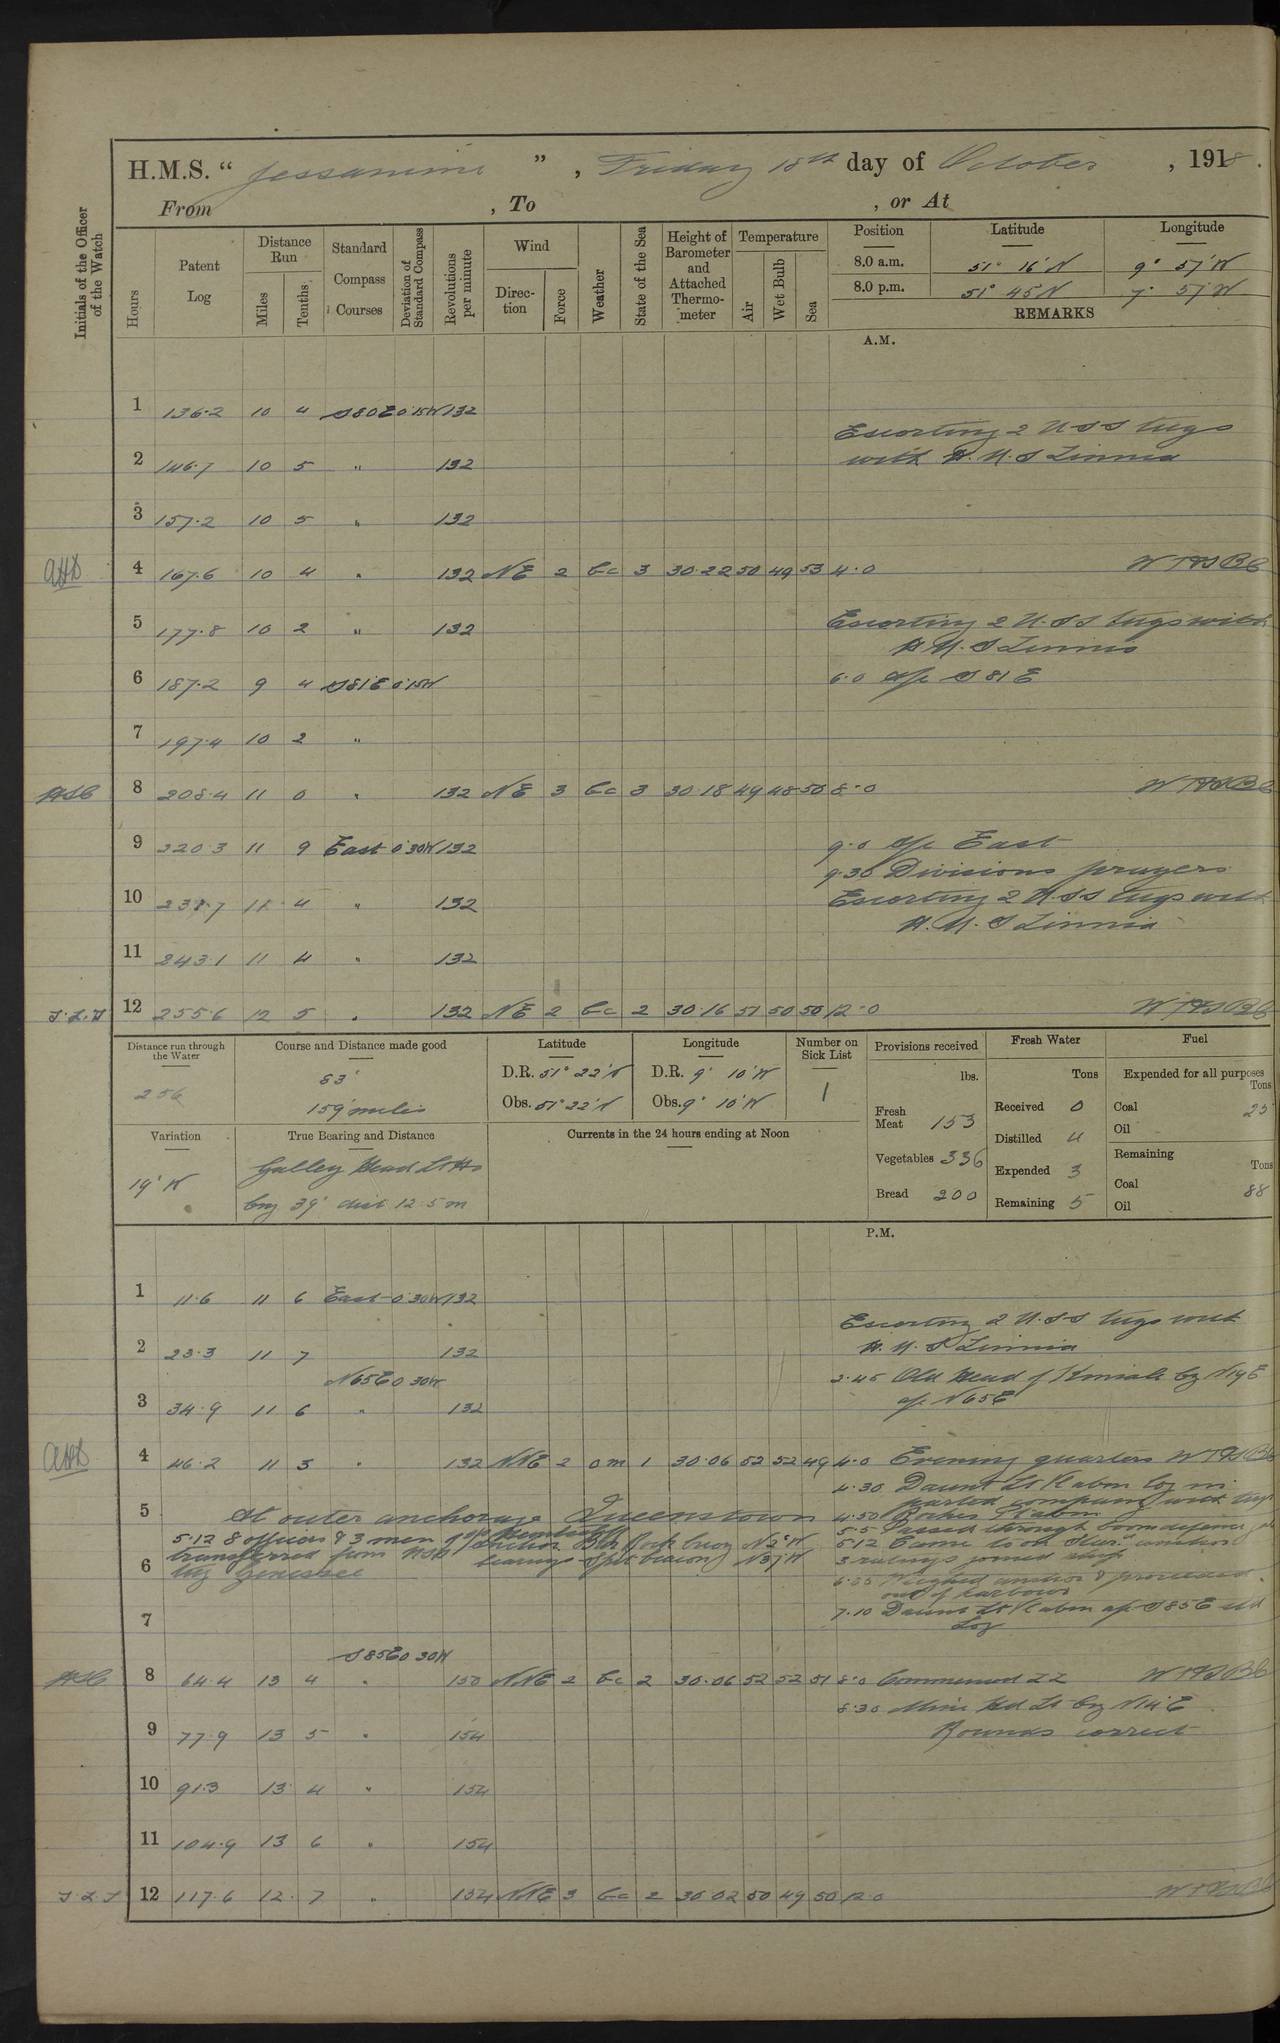 H.M.S. "Jessamine", Friday 18th day of October, 1918.
From , To , or At
Initials of the Officer of the Watch
Hours
Patent Log
Distance Run
Miles
Tenths
Standard Compass Courses
Deviation of Standard Compass
Revolutions per minute
Wind
Direction
Force
Weather
State of the Sea
Height of Barometer and Attached Thermometer
Temperature
Air
Wet Bulb
Sea
Position Latitude Longitude
8.0 a.m. 51° 16' N 9° 57' W
8.0 p.m. 51° 45 N 7° 57' W
REMARKS
A.M.
1 136.2 10 4 S80E 0.15W 132
Escorting 2 USS tugs
2 146.7 10 5 " 132 with H.M.S Linnia
3 157.2 10 5 " 132
4 167.6 10 4 " 132 NE 2 bc 3 30.22 50 49 53 4.0
5 177.8 10 2 " 132 Escorting 2 U.S.S tugs with
H.M.S Linnia
6 187.2 9 4 S81E 0.15W 6.0 a/c S81E
7 197.4 10 2 "
8 208.4 11 0 " 132 NE 3 bc 3 30.18 49 48 50 8.0
9 220.3 11 9 East 0.30W 132 9.0 a/c East
9.30 Divisions prayers
10 231.7 11 4 " 132 Escorting 2 U.S.S tugs with
H.M.S Linnia
11 243.1 11 4 " 132
12 255.6 12 5 " 132 NE 2 bc 2 30.16 51 50 50 12.0
Distance run through the Water
256
Course and Distance made good
83°
159 miles
Latitude
D.R. 51° 22' N
Obs. 51° 22' N
Longitude
D.R. 9° 10' W
Obs. 9° 10' W
Number on Sick List
1
Provisions received
lbs.
Fresh Meat 153
Vegetables 336
Bread 200
Fresh Water
Tons
Received 0
Distilled 4
Expended 3
Remaining 5
Fuel
Expended for all purposes
Tons
Coal 25
Oil
Remaining
Tons
Coal 88
Oil
Variation
19° W
True Bearing and Distance
Galley Head Lt Hs
brg 39° dist 12.5 m
Currents in the 24 hours ending at Noon
P.M.
1 11.6 11 6 East 0.30W 132
Escorting 2 U.S.S tugs with
2 23.3 11 7 132 H.M.S Linnia
N65E 0 30W 2.45 Old Head of Kinsale brg N19E
3 34.9 11 6 " 132 a/c N65E
4 46.2 11 3 " 132 NNE 2 om 1 30.06 52 52 49 4.0 Evening quarters
4.30 Daunt Lt V abm log in
parted company with tugs
5 At outer anchorage Queenstown 4.50 Roches Pt abm
5.5 Passed through boom defence
5.12 8 officers & 3 men
anchor bearings
Rock buoy N2°W
Spit beacon N37W
5.12 Came to
3 ratings joined ship
6 transferred from USN
tug Genessee
6.35 Weighed anchor & proceeded
out of harbour
7 7.10 Daunt Lt V abm a/c S85E set
log
S85E 0 30W
8 64.4 13 4 " 150 NNE 2 bc 2 30.06 52 52 51 8.0 Commenced ZZ
8.30 Mine Hd Lt brg N14E
9 77.9 13 5 " 154 Rounds correct
10 91.3 13 4 " 154
11 104.9 13 6 " 154
12 117.6 12 7 " 154 NNE 3 bc 2 30.02 50 49 50 12.0